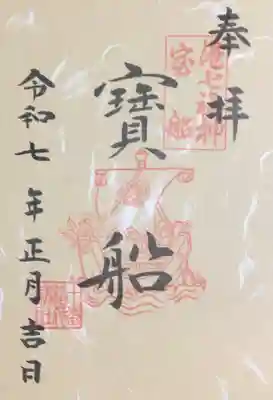 奉拝
七福神
宝船
寶船
令和七年正月吉日